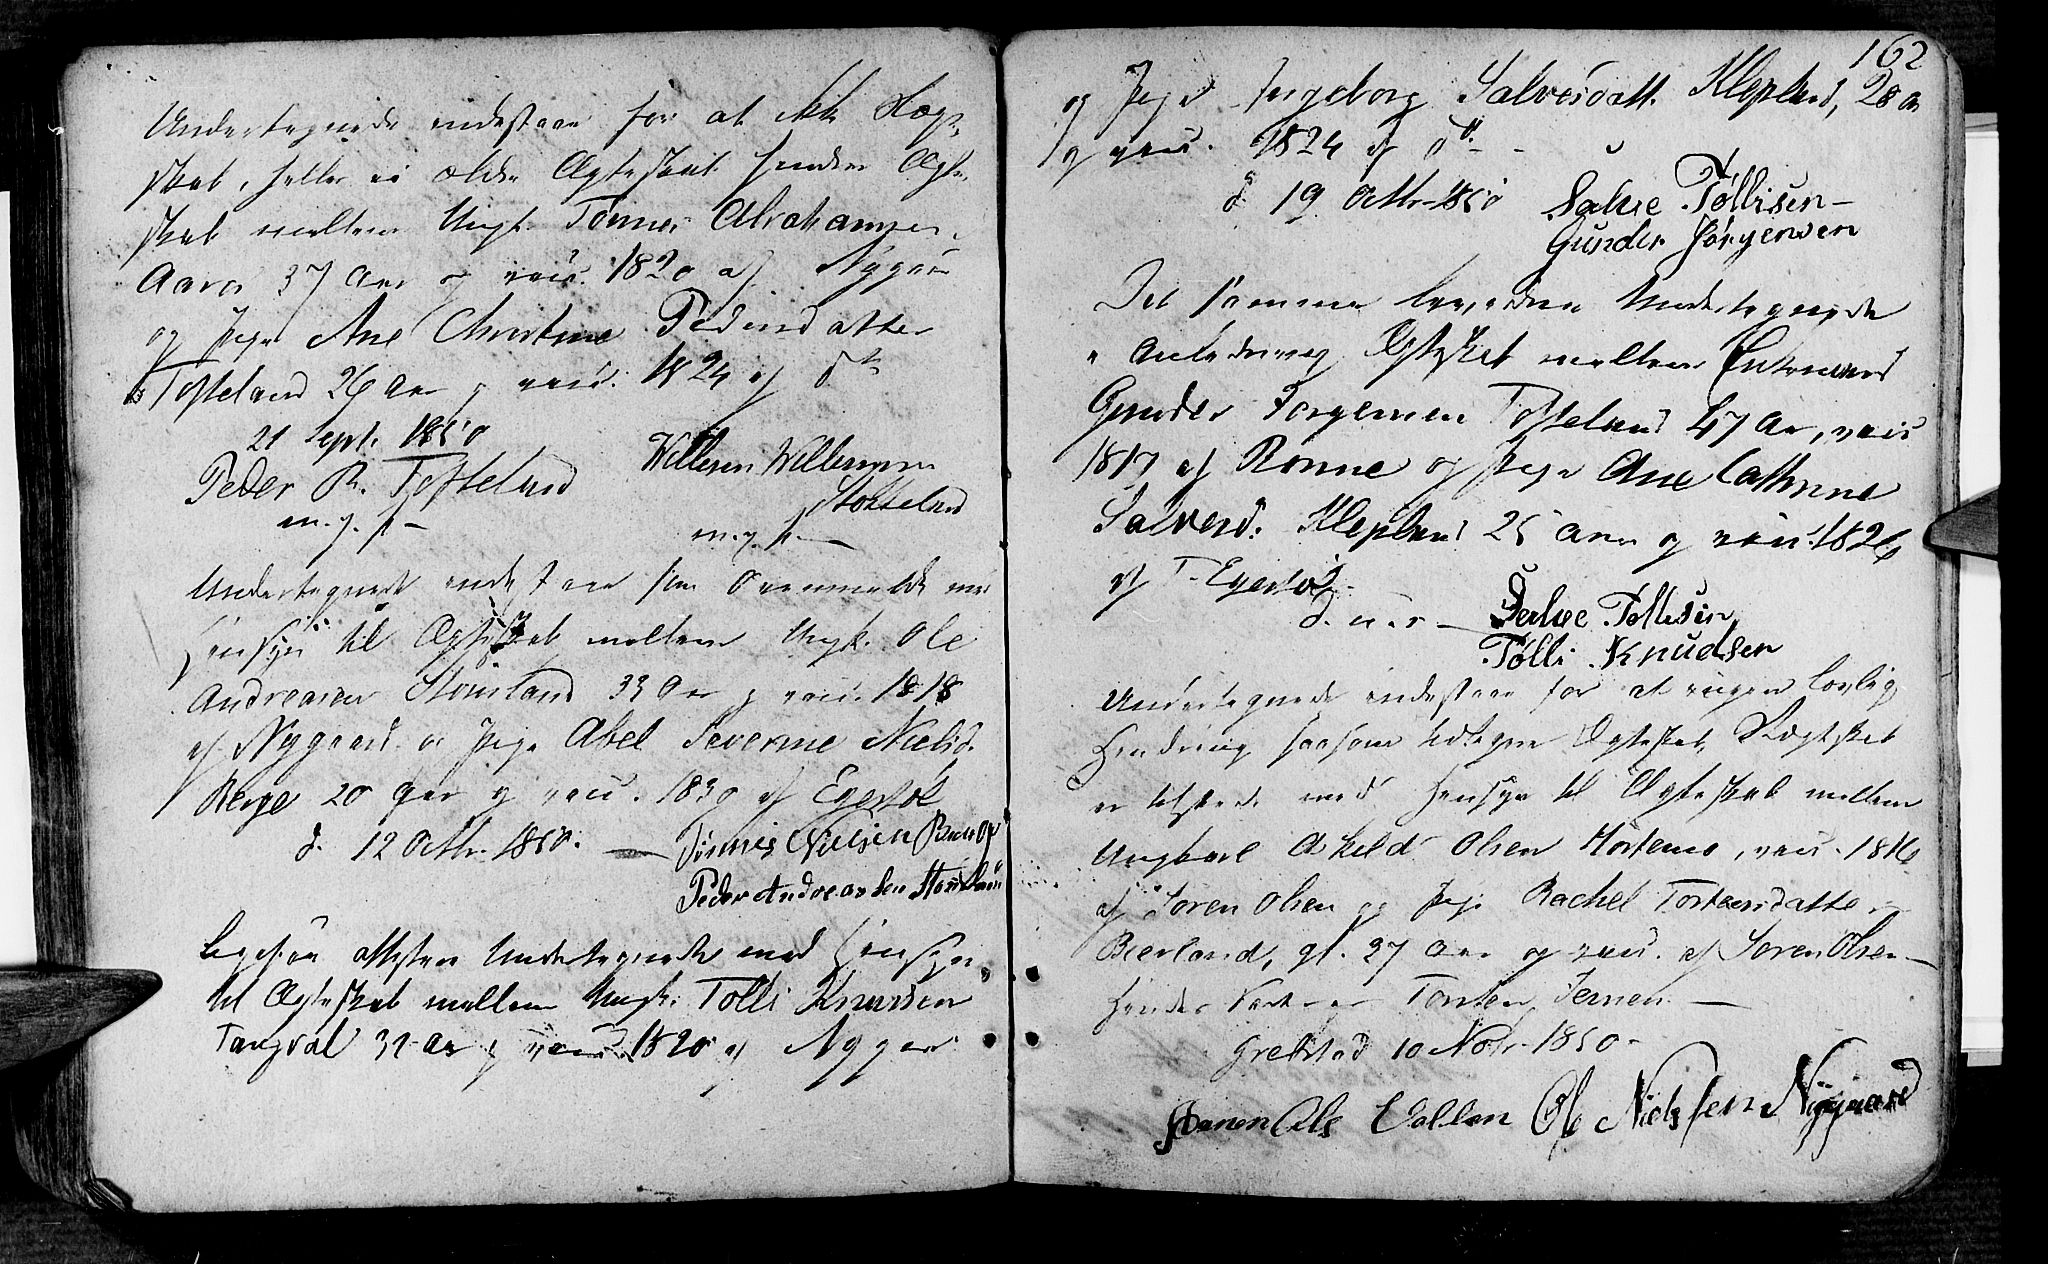 Undertegnede indestaae for at ikke Slægt-
skab, heller ei ældre Ægteskab hindrer Ægte-
skab mellem Ungk. Tønnes Abrahamsen
Aarø 37 Aar og vacc. 1820 af Nygaard
og Pige Ane Christine Pedersdatter
Tofteland 26 Aar og vacc. 1824 af dto
21 Sept. 1850
Peder R. Tofteland Willum Willumsen
m. p. Stokkeland
m. p.
Undertegnede indestaae som ovenmeldt med
Hensyn til Ægteskab mellem Ungk. Ole
Andreasen Støurland 33 Aar og vacc. 1818
af Nygaard og Pige Abel Severine Nielsd.
Berge 20 Aar og vacc. 1830 af Egestøl
d. 12 Octbr. 1850. Tønnes Nielsen
Peder Andreassen
Ligesaa attestere Undertegnede med Hensyn
til Ægteskab mellem Ungk. Tølli Knudsen
Tangval 31 Aar og vacc. 1820 af Nygaard
162
og Pige Ingeborg Salvesdatt. Klepland, 28 Aar
og vacc. 1824 af dto
d. 19 Octbr. 1850 Salve Tøllisen
Gunder Jørgensen
Det samme bevidne Undertegnede
i Anledning Ægteskab mellem Enkemand
Gunder Jørgensen Tofteland 47 Aar, vacc.
1817 af Rønne og Pige Ane Cathrine
Salvesd. Klepland 25 Aar og vacc. 1826
af T. Egestøl
d. u. s. Salve Tøllisen
Tølli Knudsen
Undertegnede indestaae for at ingen lovlig
Hindring saasom tidligere Ægteskab, Slægtskab
er tilstede med Hensyn til Ægteskab mellem
Ungkarl Akild Olsen Hortemo, vacc. 1816
af Søren Olsen og Pige Rachel Torstensdatter
Bierland, gl. 37 Aar og vacc. af Søren Olsen
hendes Torsten Jensen
Grebstad 10 Novbr. 1850
Ole Nielssen Nygaard